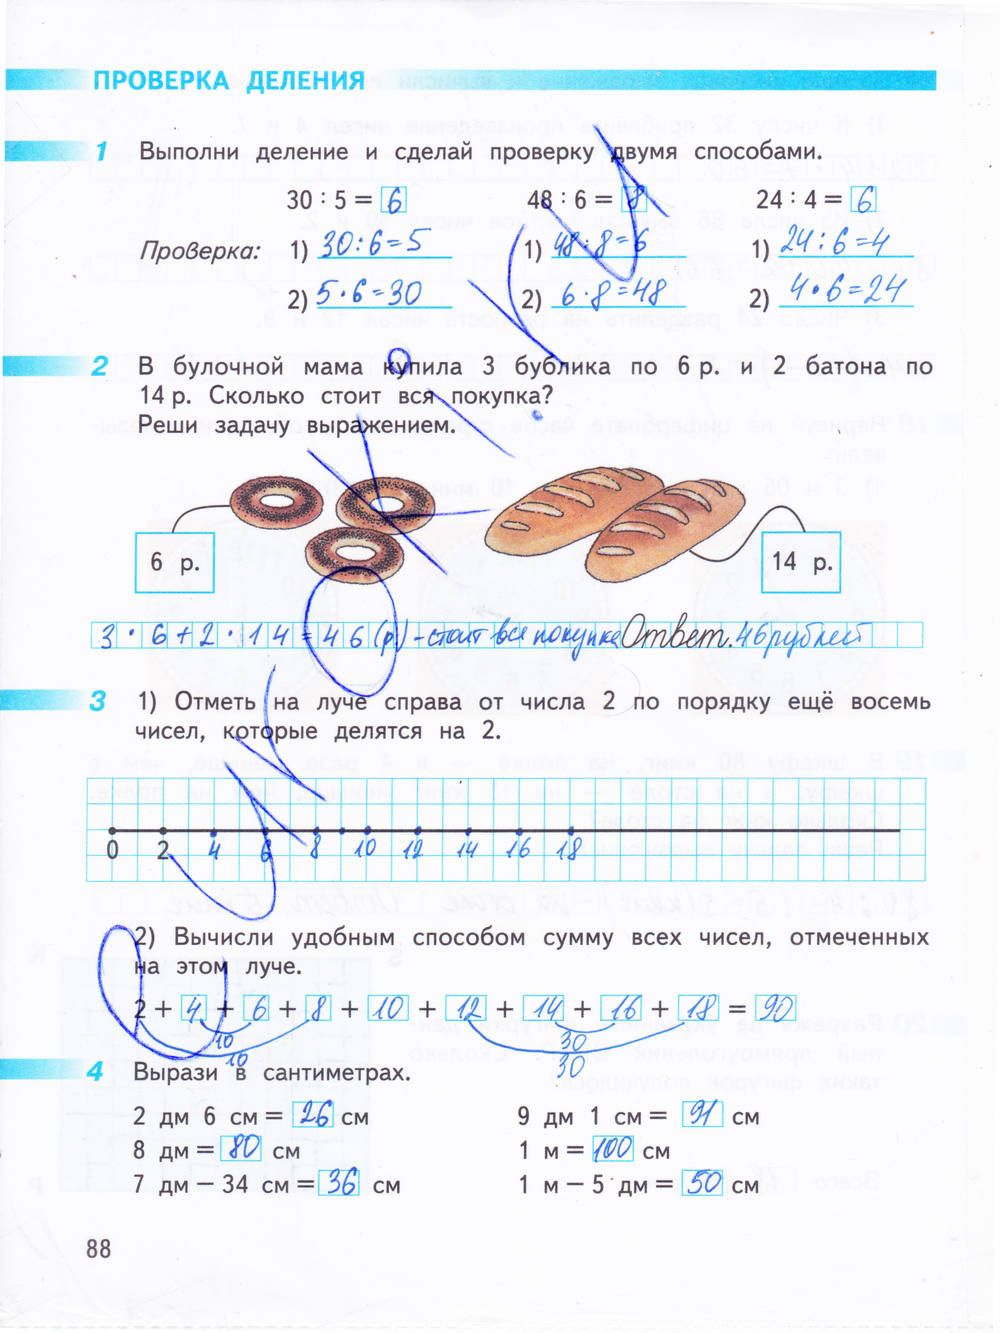 ПРОВЕРКА ДЕЛЕНИЯ
1 Выполни деление и сделай проверку двумя способами.
30 : 5 = 6 48 : 6 = 8 24 : 4 = 6
Проверка: 1) 30:6=5 1) 48:8=6 1) 24:6=4
2) 5·6=30 2) 6·8=48 2) 4·6=24
2 В булочной мама купила 3 бублика по 6 р. и 2 батона по
14 р. Сколько стоит вся покупка?
Реши задачу выражением.
6 р. 14 р.
3·6+2·14=46(р.)-стоит вся покупка Ответ. 46 рублей
3 1) Отметь на луче справа от числа 2 по порядку ещё восемь
чисел, которые делятся на 2.
0 2 4 6 8 10 12 14 16 18
2) Вычисли удобным способом сумму всех чисел, отмеченных
на этом луче.
2 + 4 + 6 + 8 + 10 + 12 + 14 + 16 + 18 = 90
10 30
10 30
4 Вырази в сантиметрах.
2 дм 6 см = 26 см 9 дм 1 см = 91 см
8 дм = 80 см 1 м = 100 см
7 дм – 34 см = 36 см 1 м – 5 дм = 50 см
88